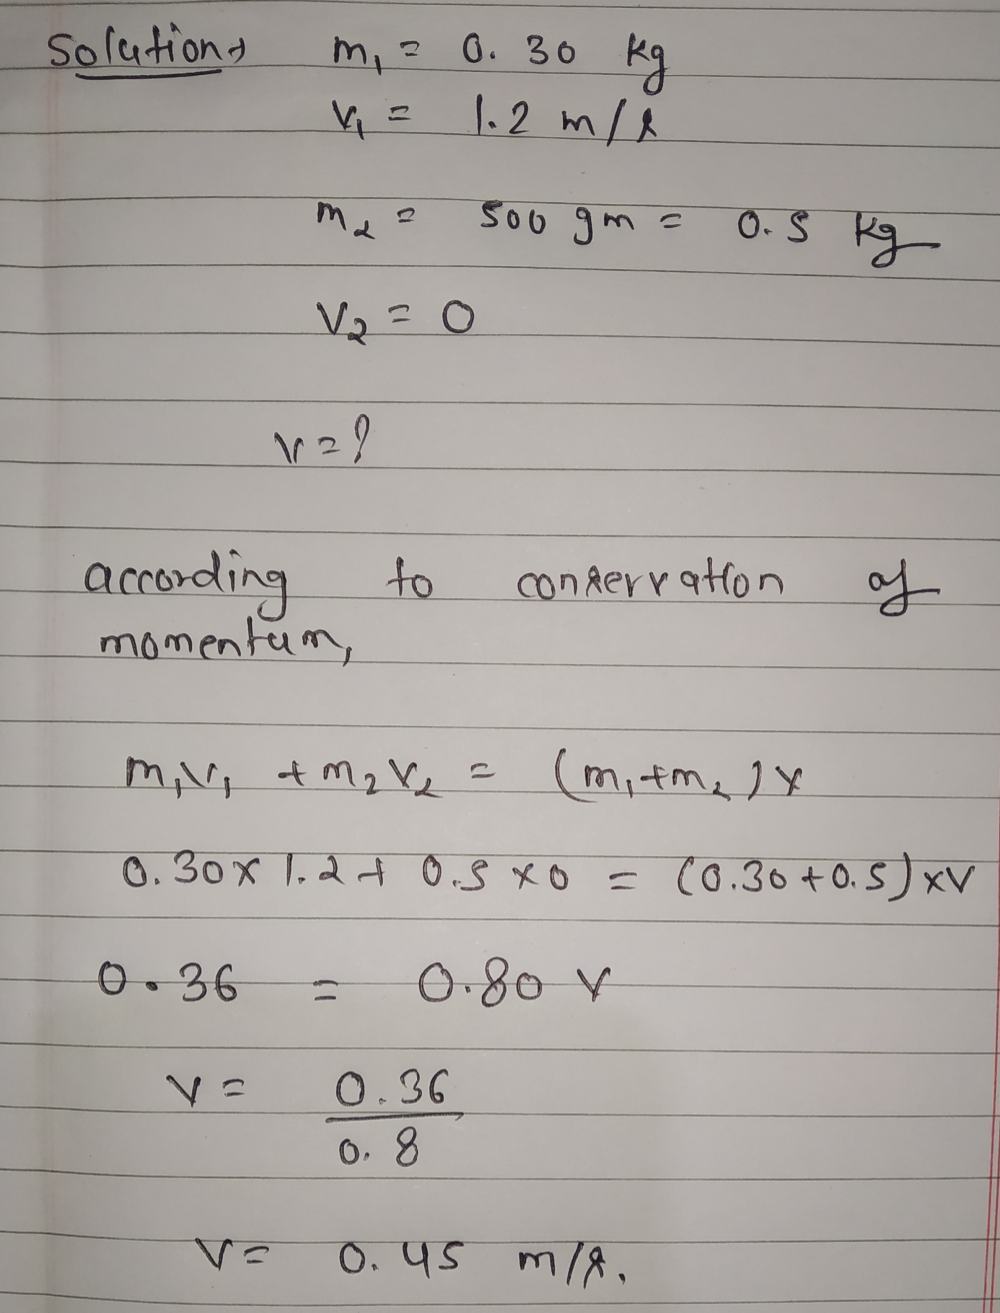 Solution→ m₁ = 0.30 kg
v₁ = 1.2 m/s
m₂ = 500 gm = 0.5 kg
V₂ = 0
v = ?
according to conservation of
momentum,
m₁v₁ + m₂v₂ = (m₁+m₂)v
0.30 x 1.2 + 0.5 x 0 = (0.30 + 0.5) x v
0.36 = 0.80 v
v = 0.36
0.8
v = 0.45 m/s.